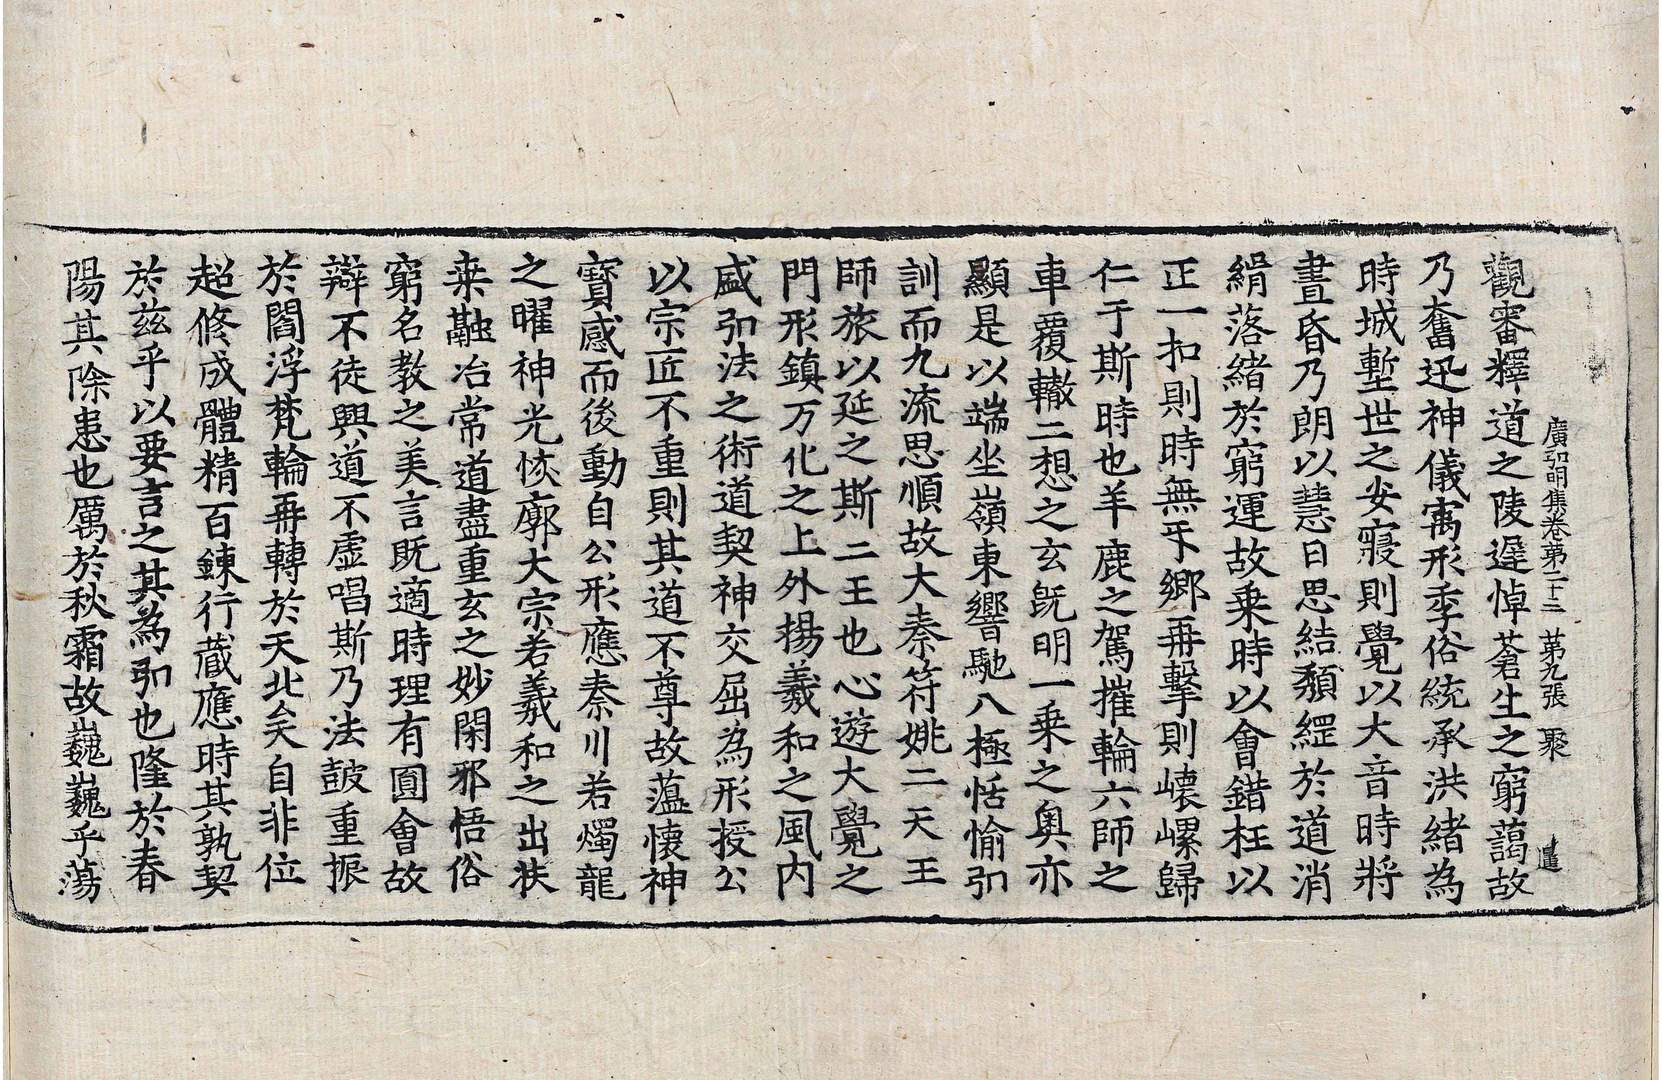 廣弘明集卷第二十三 第九張 聚
觀審釋道之陵遲悼蒼生之窮藹故
乃奮迅神儀寓形季俗統承洪緒為
時城塹世之安寢則覺以大音時將
晝昏乃朗以慧日思結頽綱於道消
緝落緒於窮運故乗時以會錯枉以
正一扣則時無互郷再擊則㠢嵺歸
仁于斯時也羊鹿之駕摧輪六師之
車覆轍二想之玄既明一乗之奥亦
顯是以端坐嶺東響馳八極恬愉弘
訓而九流思順故大秦符姚二天王
師旅以延之斯二王也心遊大覺之
門形鎮万化之上外揚羲和之風内
盛弘法之術道契神交屈為形授公
以宗匠不重則其道不尊故藴懷神
寳感而後動自公形應秦川若燭龍
之曜神光恢廓大宗若羲和之出扶
桒融冶常道盡重玄之妙閑邪悟俗
窮名教之美言既適時理有圓會故
辯不徒興道不虛唱斯乃法皷重振
於閻浮梵輪再轉於天北矣自非位
超修成體精百鍊行藏應時其孰契
於兹乎以要言之其為弘也隆於春
陽其除患也厲於秋霜故巍巍乎蕩